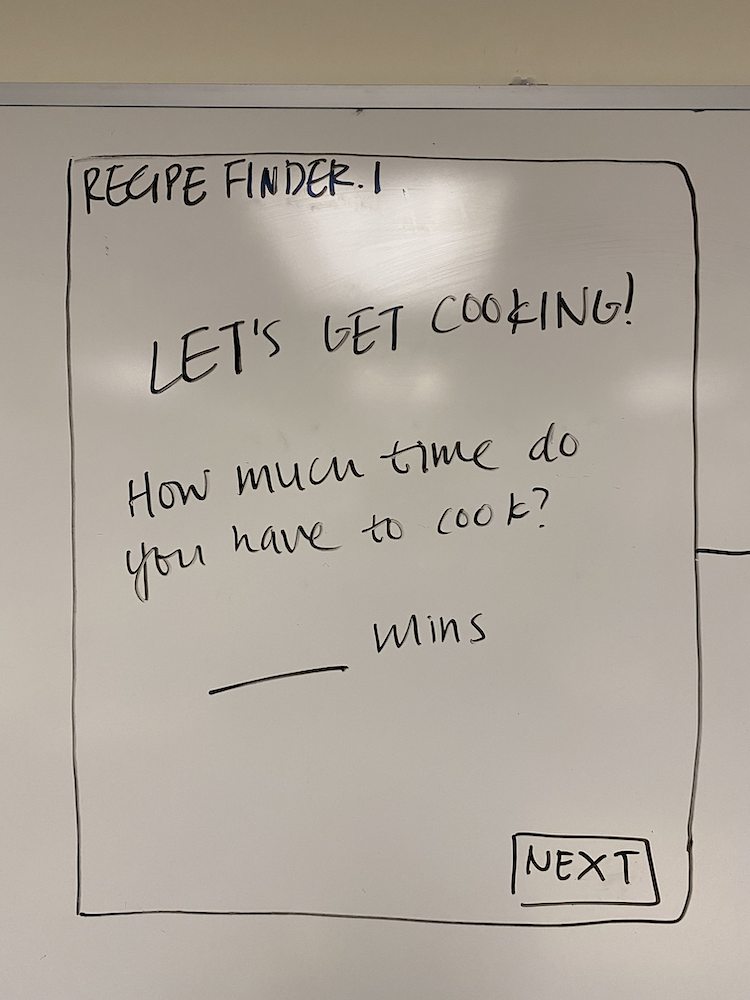 RECIPE FINDER.1
LET'S GET COOKING!
How much time do
you have to cook?
____ mins
NEXT